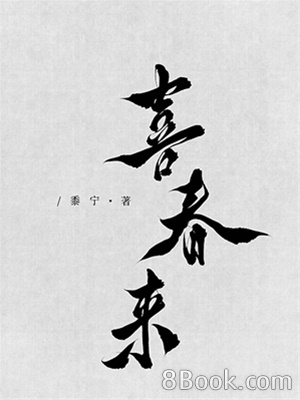 喜春来
/ 黍宁·著
8Book.com